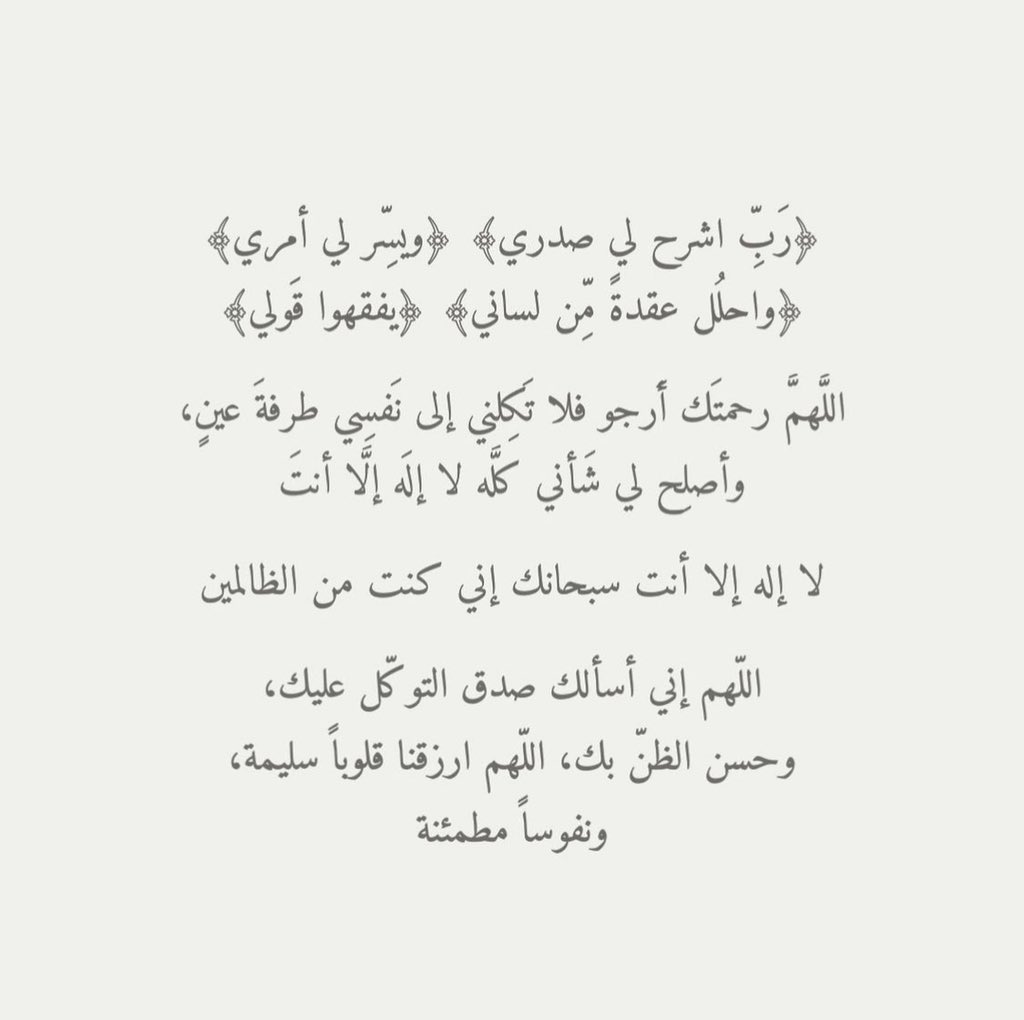 ﴿رَبِّ اشرح لي صدري﴾ ﴿ويسِّر لي أمري﴾
﴿واحلُل عقدةً مِّن لساني﴾ ﴿يفقهوا قَولي﴾
اللَّهمَّ رحمتَك أَرجو فلا تَكِلني إلى نَفسِي طرفةَ عينٍ،
وأصلِح لي شَأني كلَّه لا إلَه إلَّا أنتَ
لا إله إلا أنت سبحانك إني كنت من الظالمين
اللّهم إني أسألك صدق التوكّل عليك،
وحسن الظنّ بك، اللّهم ارزقنا قلوباً سليمة،
ونفوساً مطمئنة